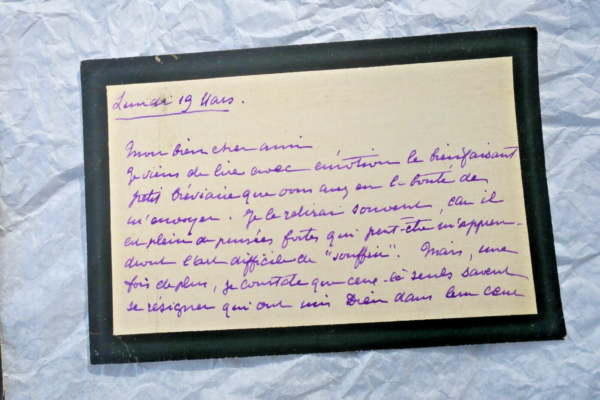 Lundi 19 Mars.
Mon bien cher ami
Je viens de lire avec émotion le bienfaisant
petit bréviaire que vous avez eu la bonté de
m'envoyer. Je le relirai souvent, car il
est plein de pensées fortes qui peut-être m'appren-
dront l'art difficile de "souffrir". Mais, une
fois de plus, je constate que ceux-là seuls savent
se résigner qui ont mis Dieu dans leur cœur